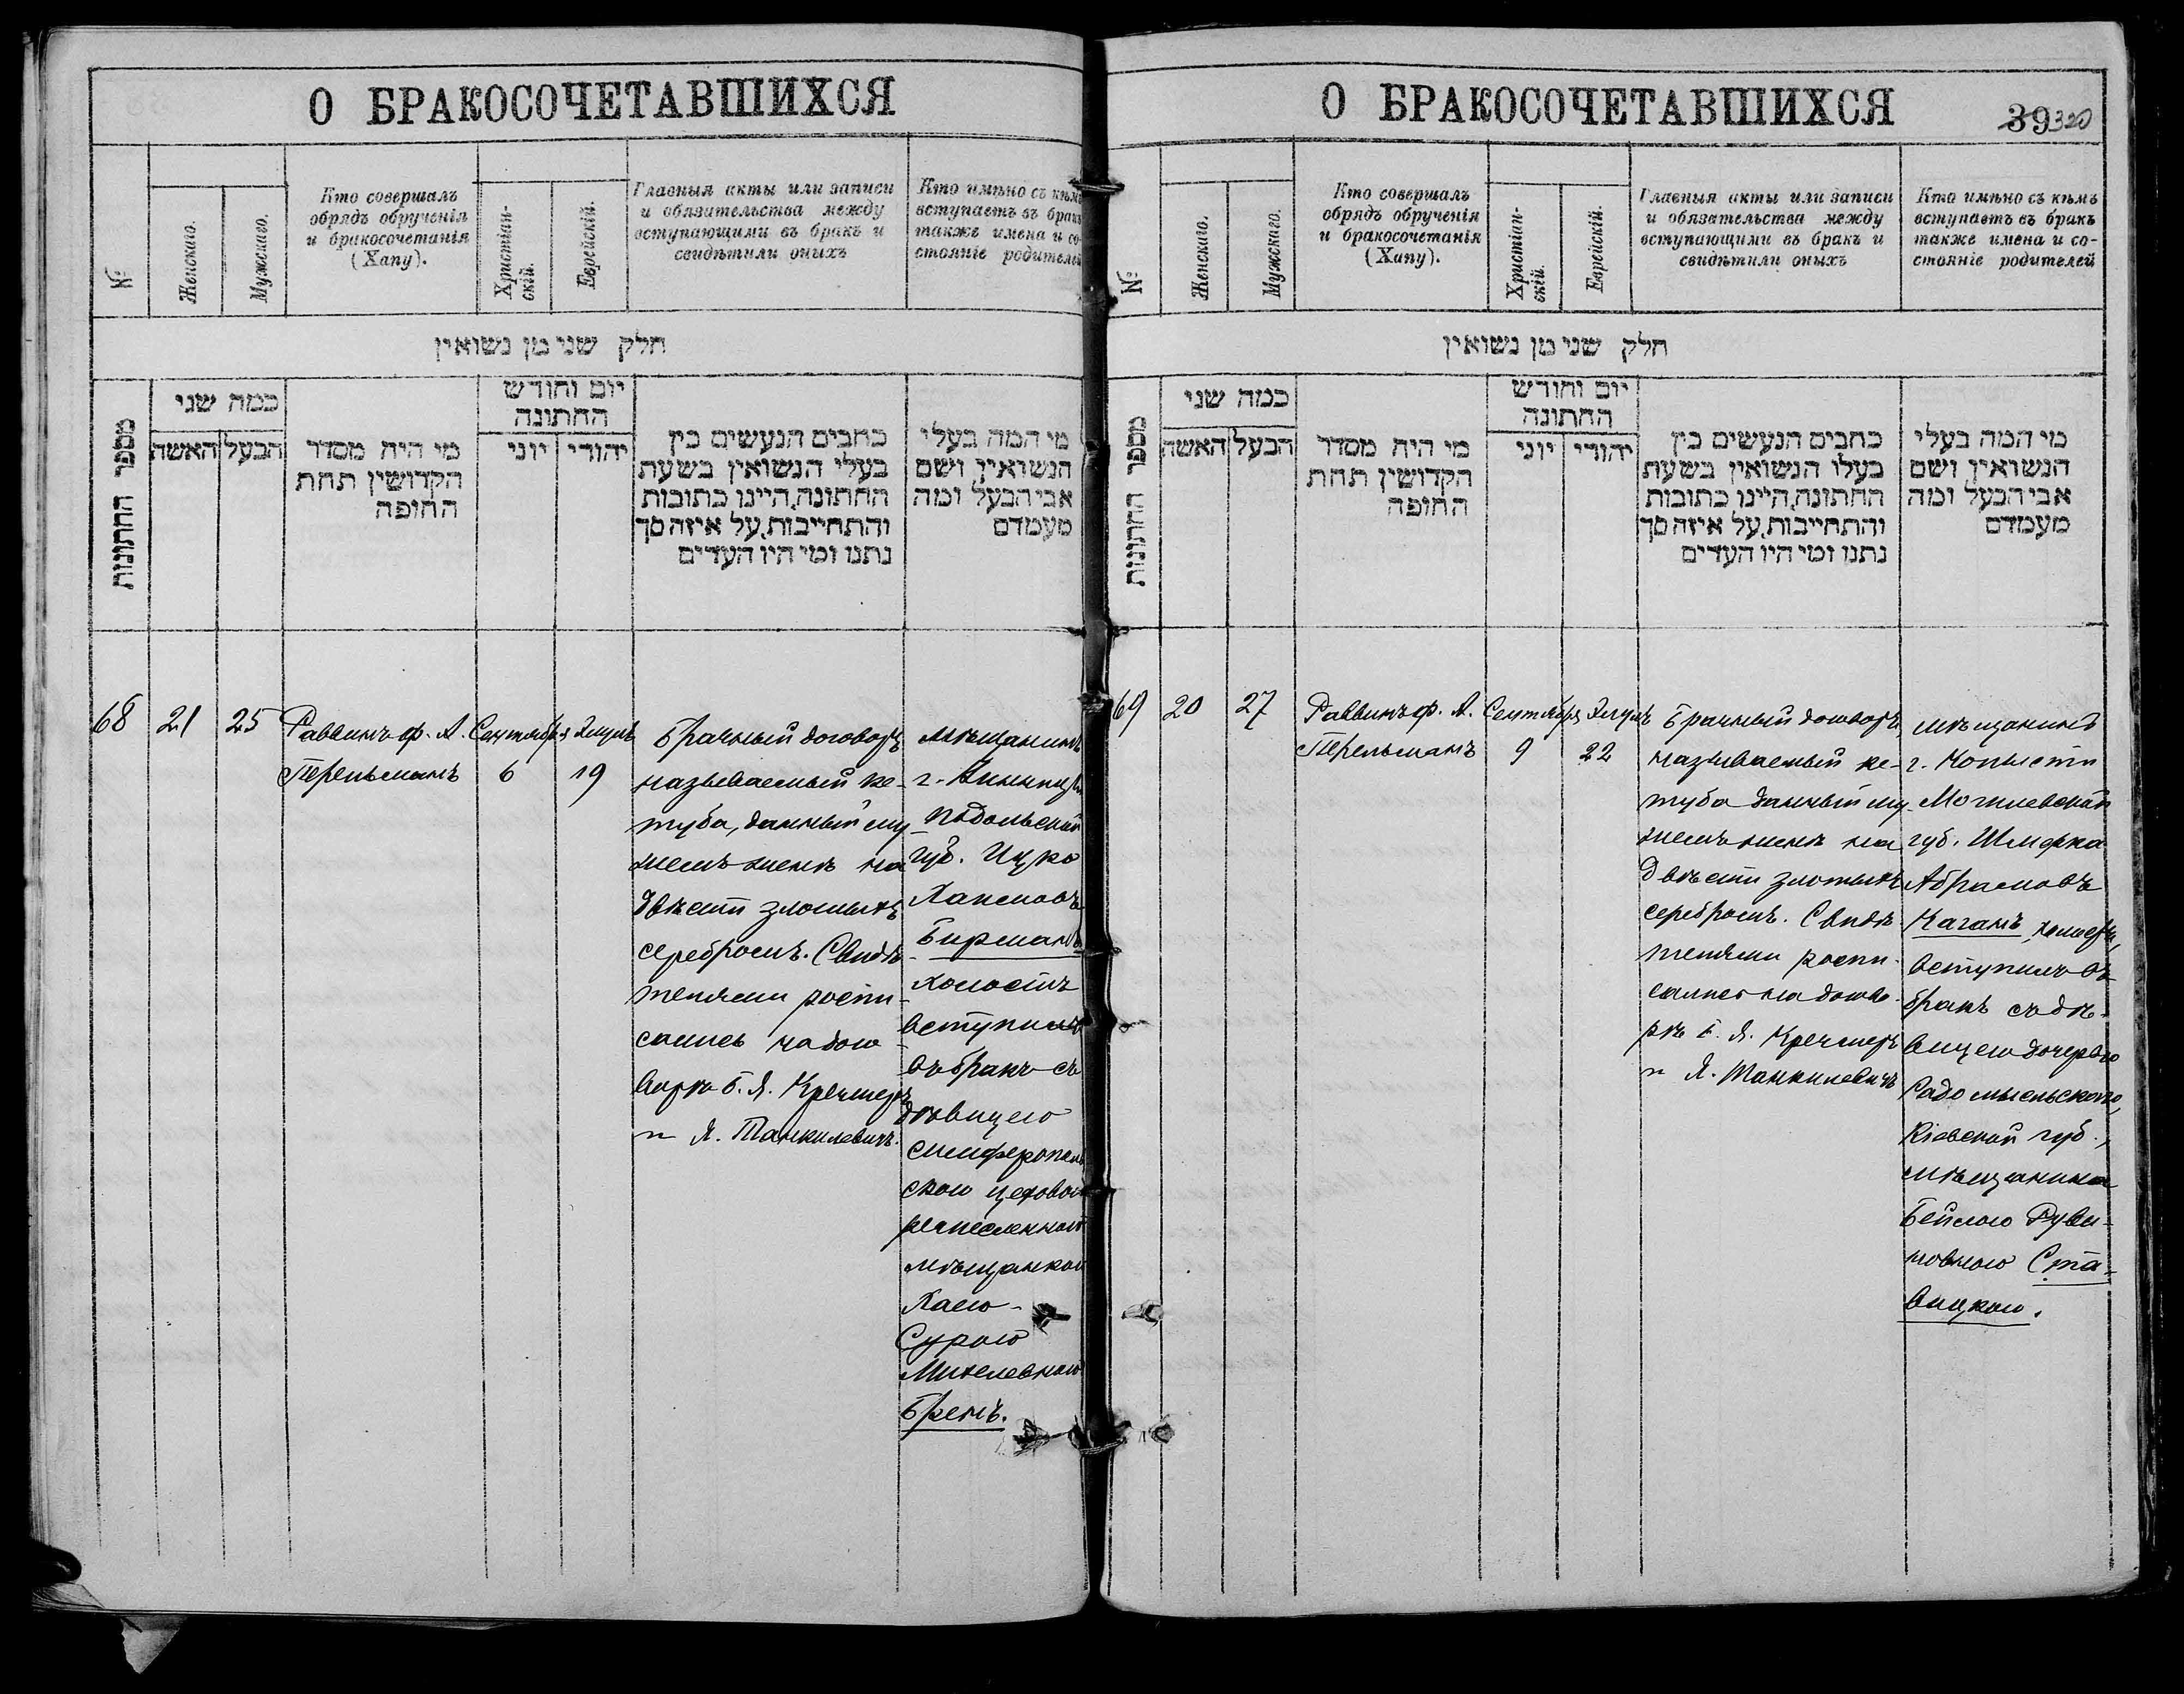 О БРАКОСОЧЕТАВШИХСЯ
№
Женскаго.
Мужскаго.
Кто совершалъ
обрядъ обрученія
и бракосочетанія
(Хапу).
Христіан-
скій.
Еврейскій.
Главныя акты или записи
и обязательства между
вступающими въ бракъ и
свидѣтили оныхъ
Кто имѣно съ кѣмъ
вступаетъ въ бракъ
также имена и со-
стояніе родителей
חלק שני מן נשואין
מספר החתונות
כמה שני
האשה
הבעל
מי היה מסדר
הקדושין תחת
החופה
יום וחודש
החתונה
יוני
יהודי
כתבים הנעשים בין
בעלי הנשואין בשעת
החתונה, היינו כתובות
והתחייבות, על איזה סך
נתנו ומי היו העדים
מי המה בעלי
הנשואין ושם
אבי הבעל ומה
מעמדם
68
21
25
Раввинъ ф. А.
Перельманъ
Сентября
6
Элулъ
19
Брачный договоръ
называемый ке-
туба, данный му-
жемъ женѣ на
двѣсти злотыхъ
серебромъ. Свидѣ-
телями роспи-
сались на дого-
ворѣ Б. Я. Кречмеръ
и Я. Танкилевичъ.
мѣщанинъ
г. Винницы
Подольской
губ. Ицко
Хаимовъ
Бирманъ
холостъ
вступилъ
въ бракъ съ
дѣвицею
симферополь
скою цеховой
ремесленной
мѣщанкой
Хаею-
Сурою
Михелевною
Бремъ.
О БРАКОСОЧЕТАВШИХСЯ
39 320
№
Женскаго.
Мужскаго.
Кто совершалъ
обрядъ обрученія
и бракосочетанія
(Хапу).
Христіан-
скій.
Еврейскій.
Главныя акты или записи
и обязательства между
вступающими въ бракъ и
свидѣтили оныхъ
Кто имѣно съ кѣмъ
вступаетъ въ бракъ
также имена и со-
стояніе родителей
חלק שני מן נשואין
מספר החתונות
כמה שני
האשה
הבעל
מי היה מסדר
הקדושין תחת
החופה
יום וחודש
החתונה
יוני
יהודי
כתבים הנעשים בין
בעלו הנשואין בשעת
החתונה, היינו כתובות
והתחייבות, על איזה סך
נתנו ומי היו העדים
מי המה בעלי
הנשואין ושם
אבי הבעל ומה
מעמדם
69
20
27
Раввинъ ф. А.
Перельманъ
Сентября
9
Элулъ
22
Брачный договоръ
называемый ке-
туба данный му-
жемъ женѣ на
двѣсти злотыхъ
серебромъ. Свидѣ-
телями роспи-
сались на догово-
рѣ Б. Я. Кречмеръ
и Я. Танкилевичъ
мѣщанинъ
г. Копысти
Могилевской
губ. Шмерка
Абрамовъ
Каганъ, холостъ,
вступилъ въ
бракъ съ дѣ-
вицею дочерью
Радомысльскаго,
Кіевской губ.,
мѣщанина
Бейлою Руви-
новною Ста-
вицкою.